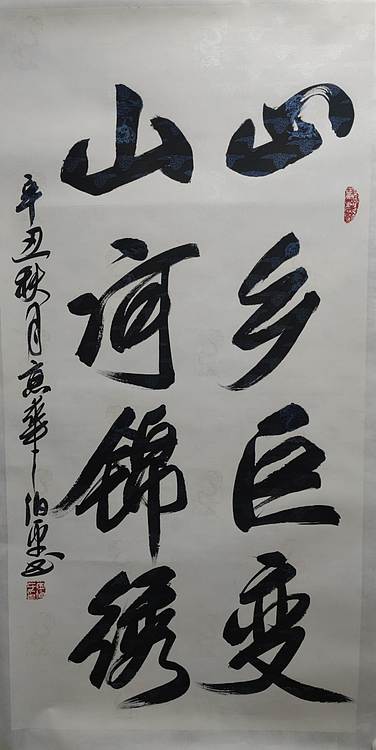 山乡巨变
山河锦绣
辛丑秋月京华伯平书